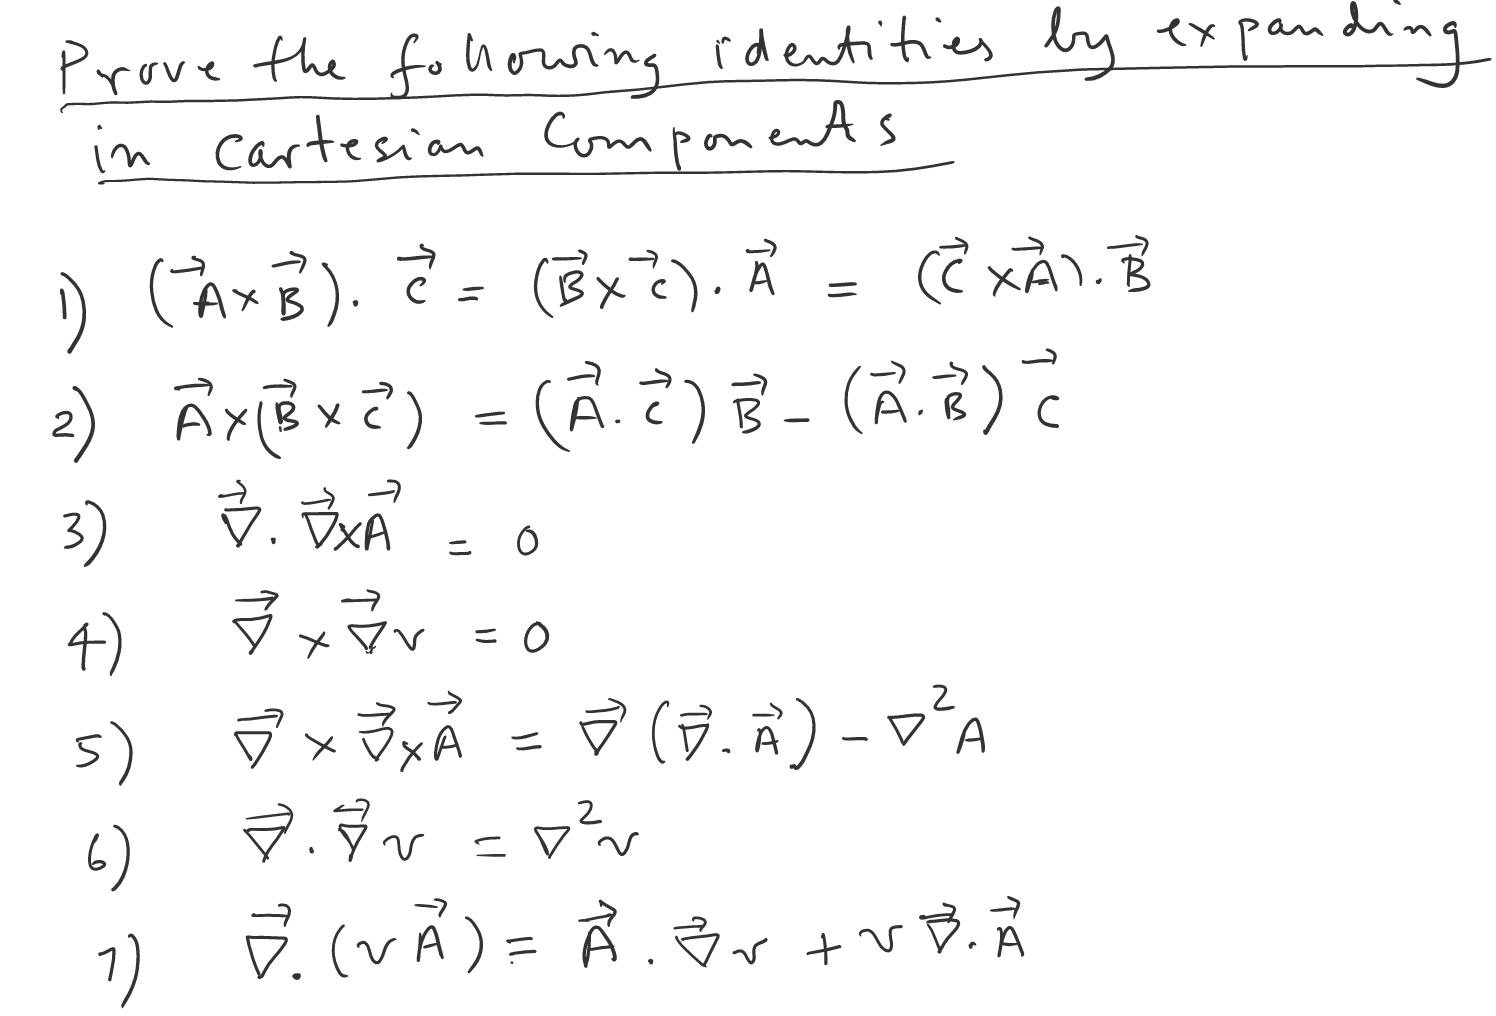 Prove the following identities by expanding
in Cartesian Components
1) (A⃗ × B⃗). C⃗ = (B⃗ × C⃗). A⃗ = (C⃗ × A⃗). B⃗
2) A⃗ × (B⃗ × C⃗) = (A⃗. C⃗) B⃗ − (A⃗. B⃗) C⃗
3) ∇⃗. ∇⃗ × A⃗ = 0
4) ∇⃗ × ∇⃗v = 0
5) ∇⃗ × ∇⃗ × A⃗ = ∇⃗ (∇⃗. A⃗) − ∇²A
6) ∇⃗. ∇⃗v = ∇²v
7) ∇⃗. (v A⃗) = A⃗. ∇⃗v + v ∇⃗. A⃗